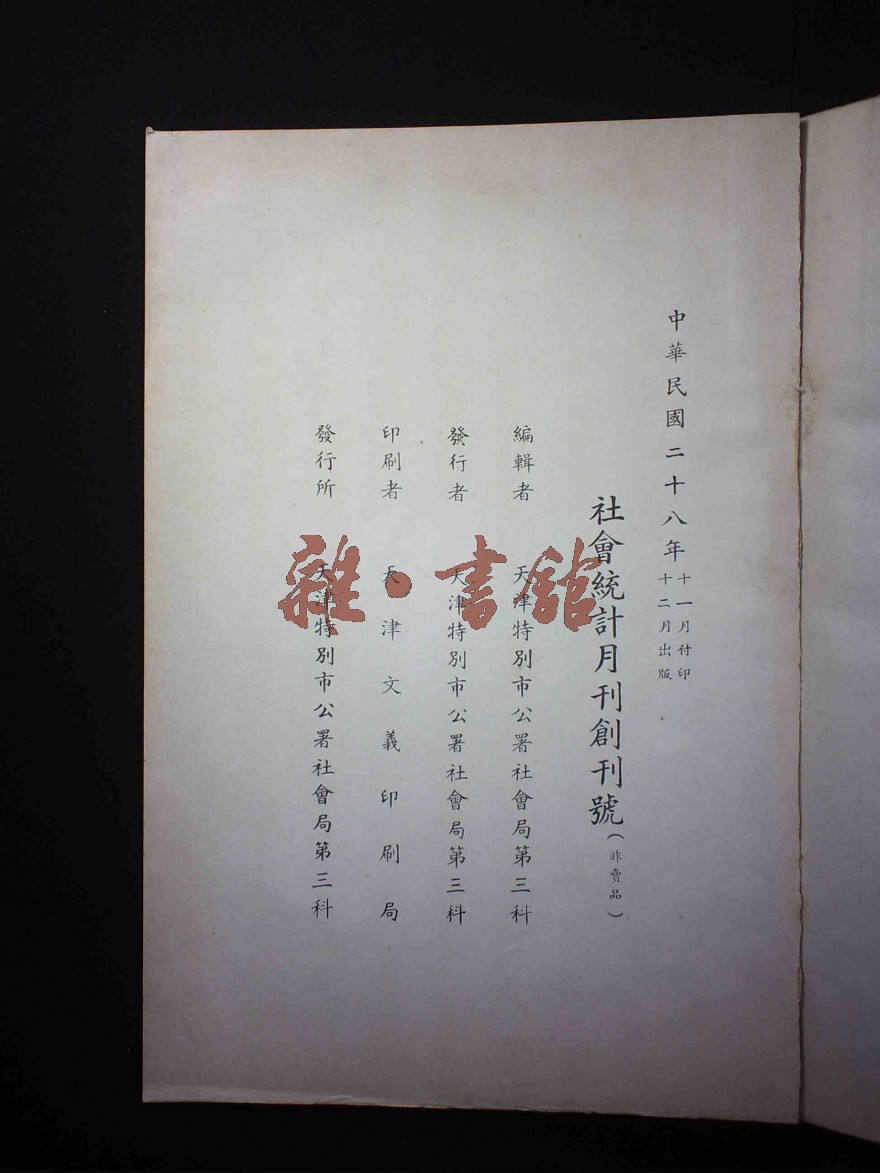 中華民國二十八年
十一月付印
十二月出版
社會統計月刊創刊號（非賣品）
編輯者 天津特別市公署社會局第三科
發行者 天津特別市公署社會局第三科
印刷者 天津文義印刷局
發行所 天津特別市公署社會局第三科
雜·書館